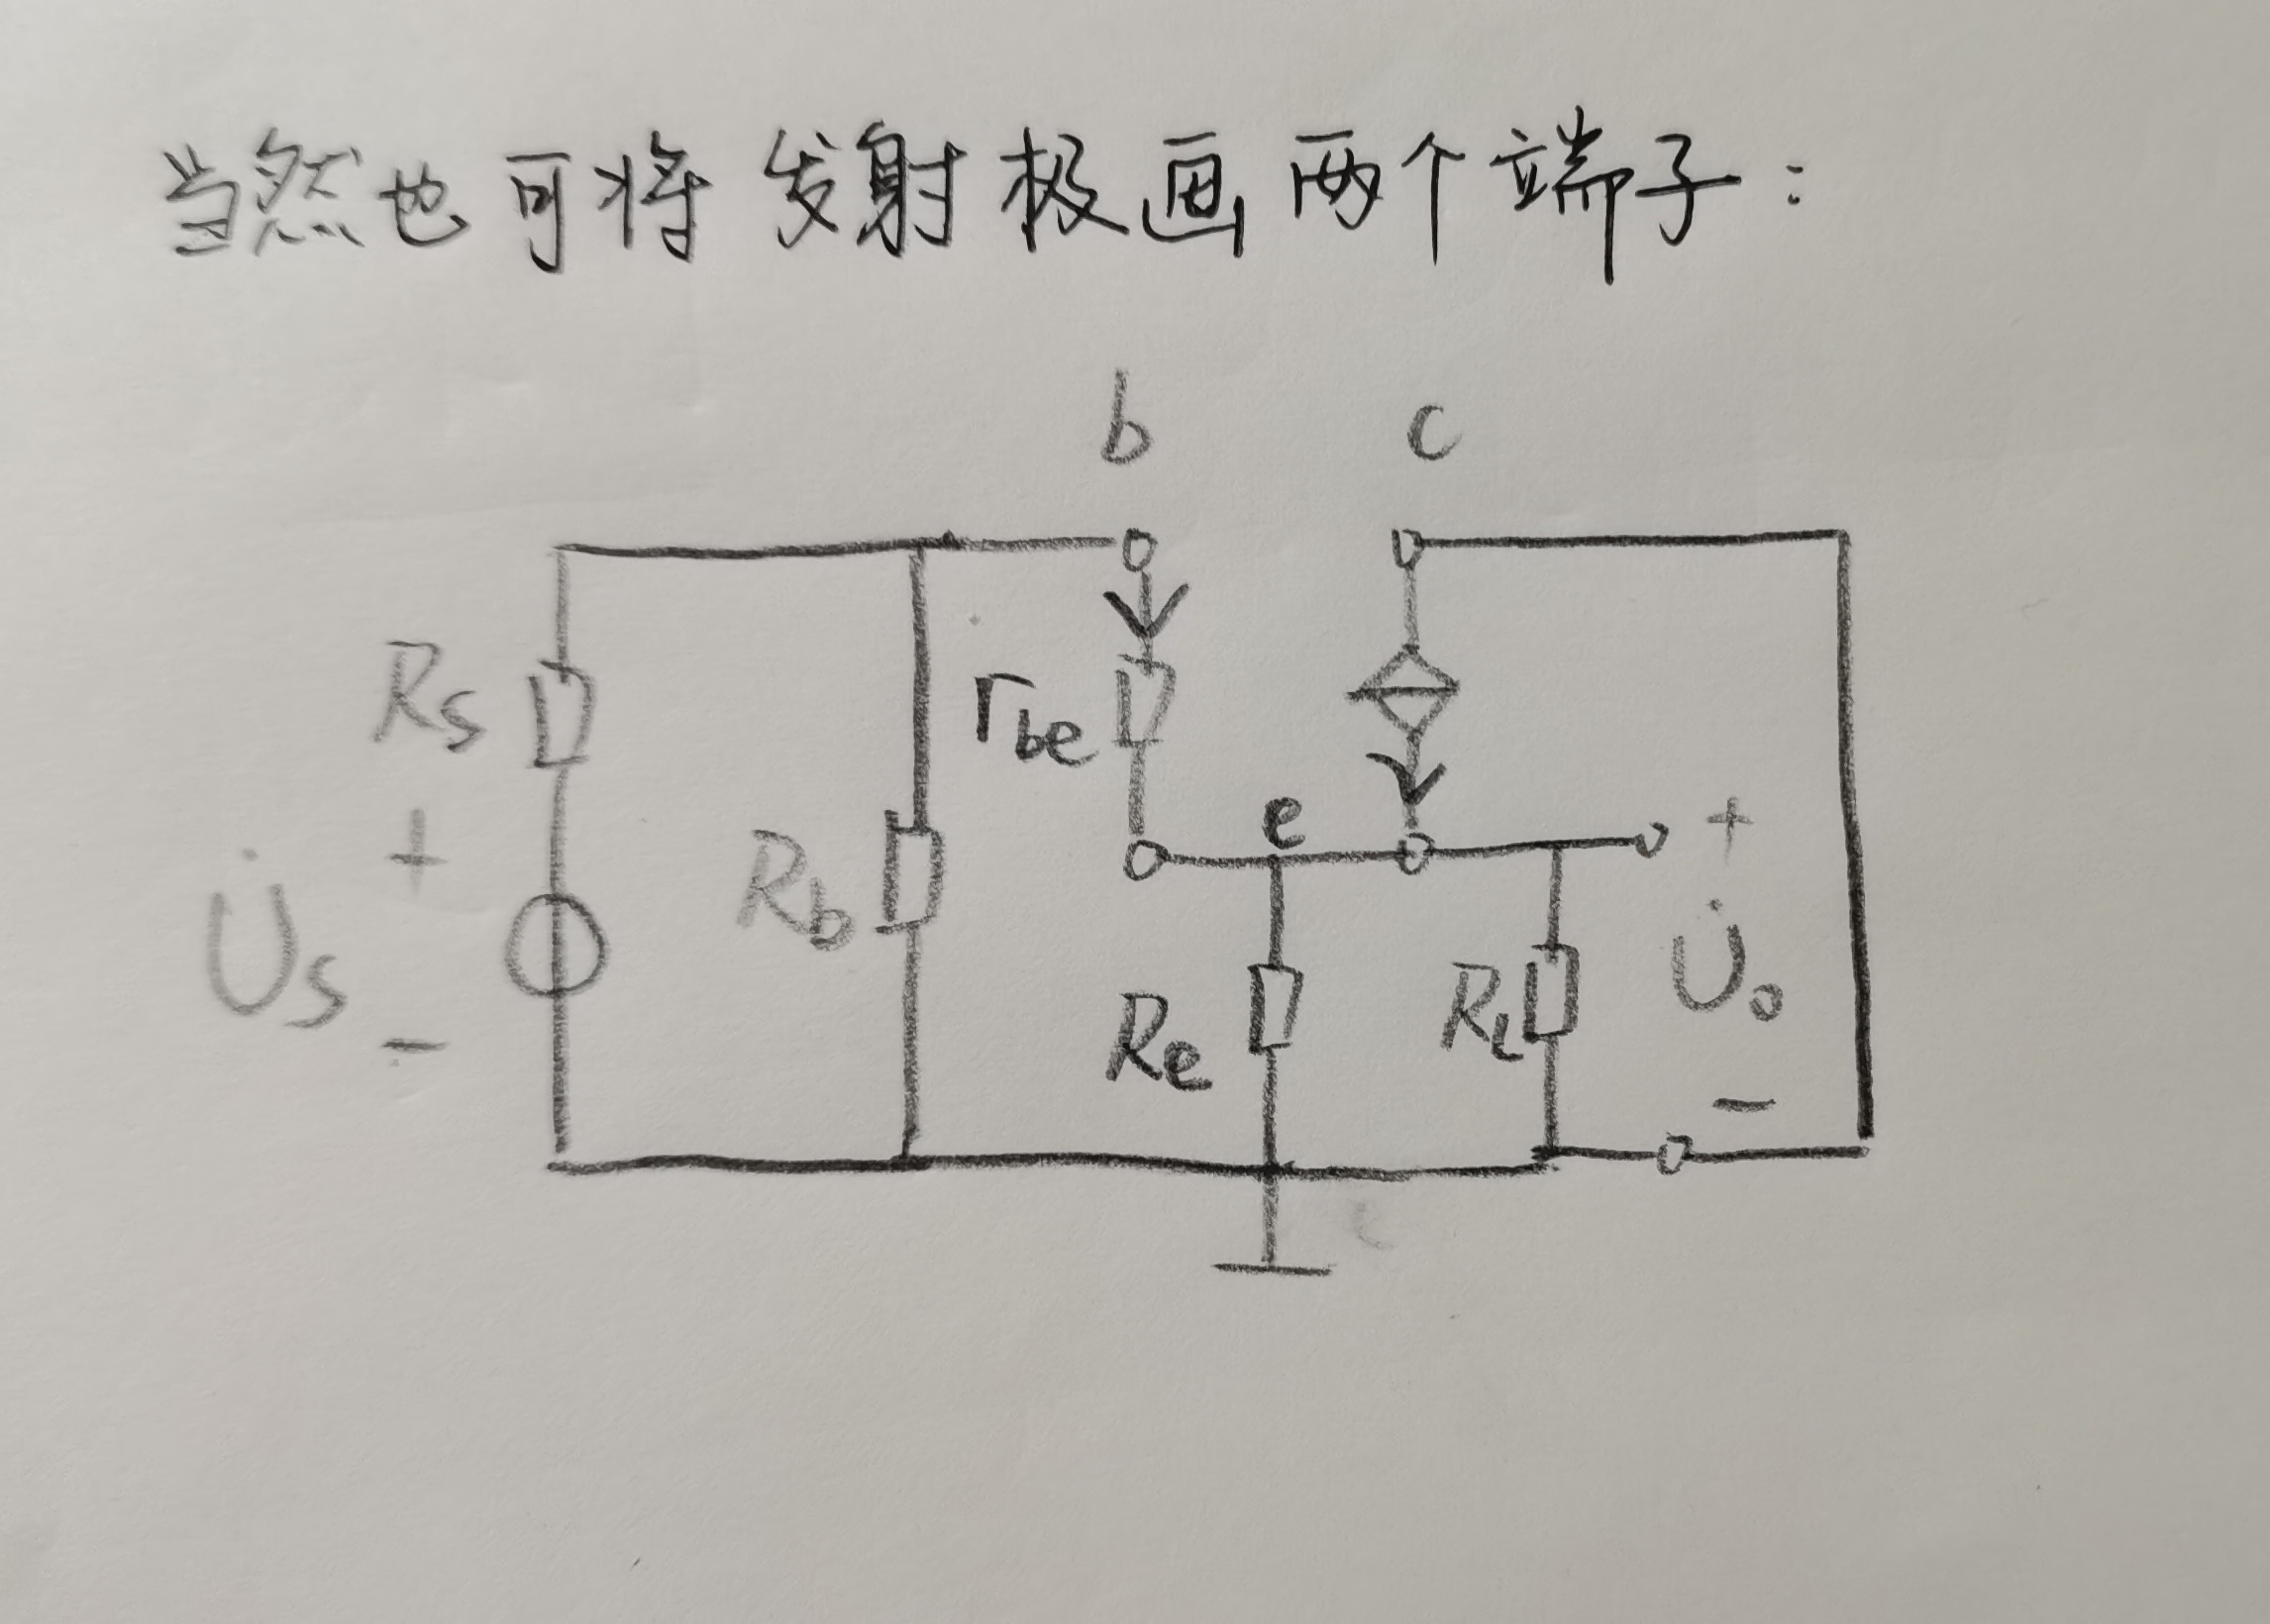 当然也可将发射极画两个端子:
b c
Rs
rbe
+
U̇s
-
Rb
e
+
Re
RL
U̇o
-